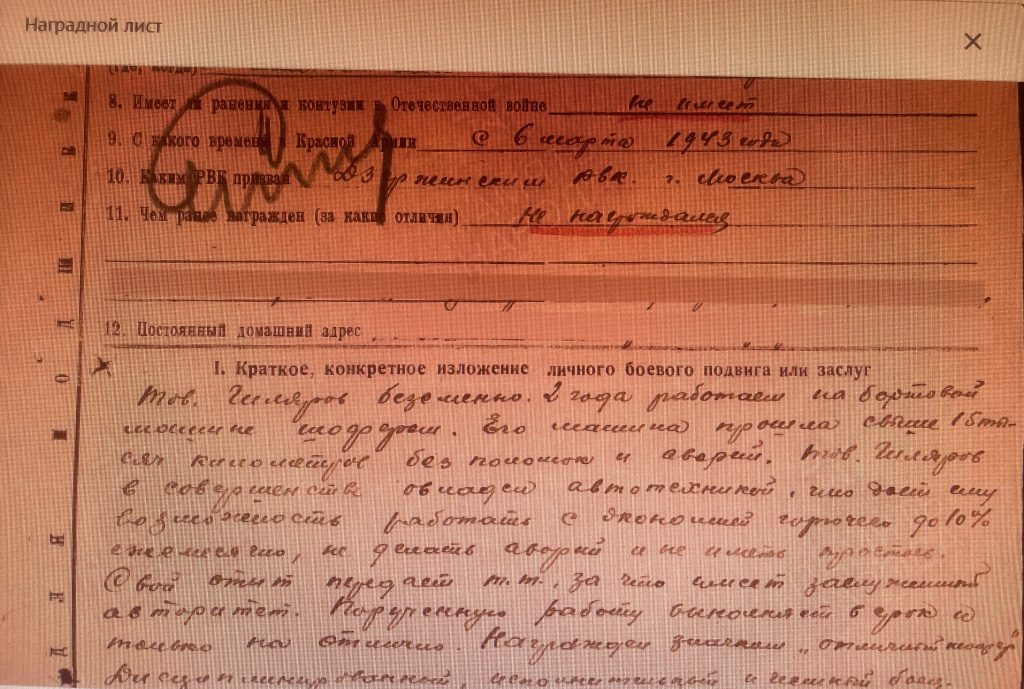 Наградной лист
(где, когда)
8. Имеет ли ранения и контузии в Отечественной войне не имеет
9. С какого времени в Красной Армии С 6 марта 1943 года
10. Каким РВК призван Дзержинским РВК. г. Москва
11. Чем ранее награжден (за какие отличия) Не награждался
12. Постоянный домашний адрес
I. Краткое, конкретное изложение личного боевого подвига или заслуг
Тов. Гиляров безсменно. 2 года работает на бортовой
машине шофером. Его машина прошла свыше 15 ты-
сяч километров без поломок и аварий. Тов. Гиляров
в совершенстве овладел автотехникой, что дает ему
возможность работать с экономией горючего до 10%
ежемесячно, не делать аварий и не иметь простоев.
Свой опыт передает т.т., за что имеет заслуженный
авторитет. Порученную работу выполняет в срок и
только на отлично. Награжден значком „отличный шофер"
Дисциплинированный, исполнительный и честный боец.